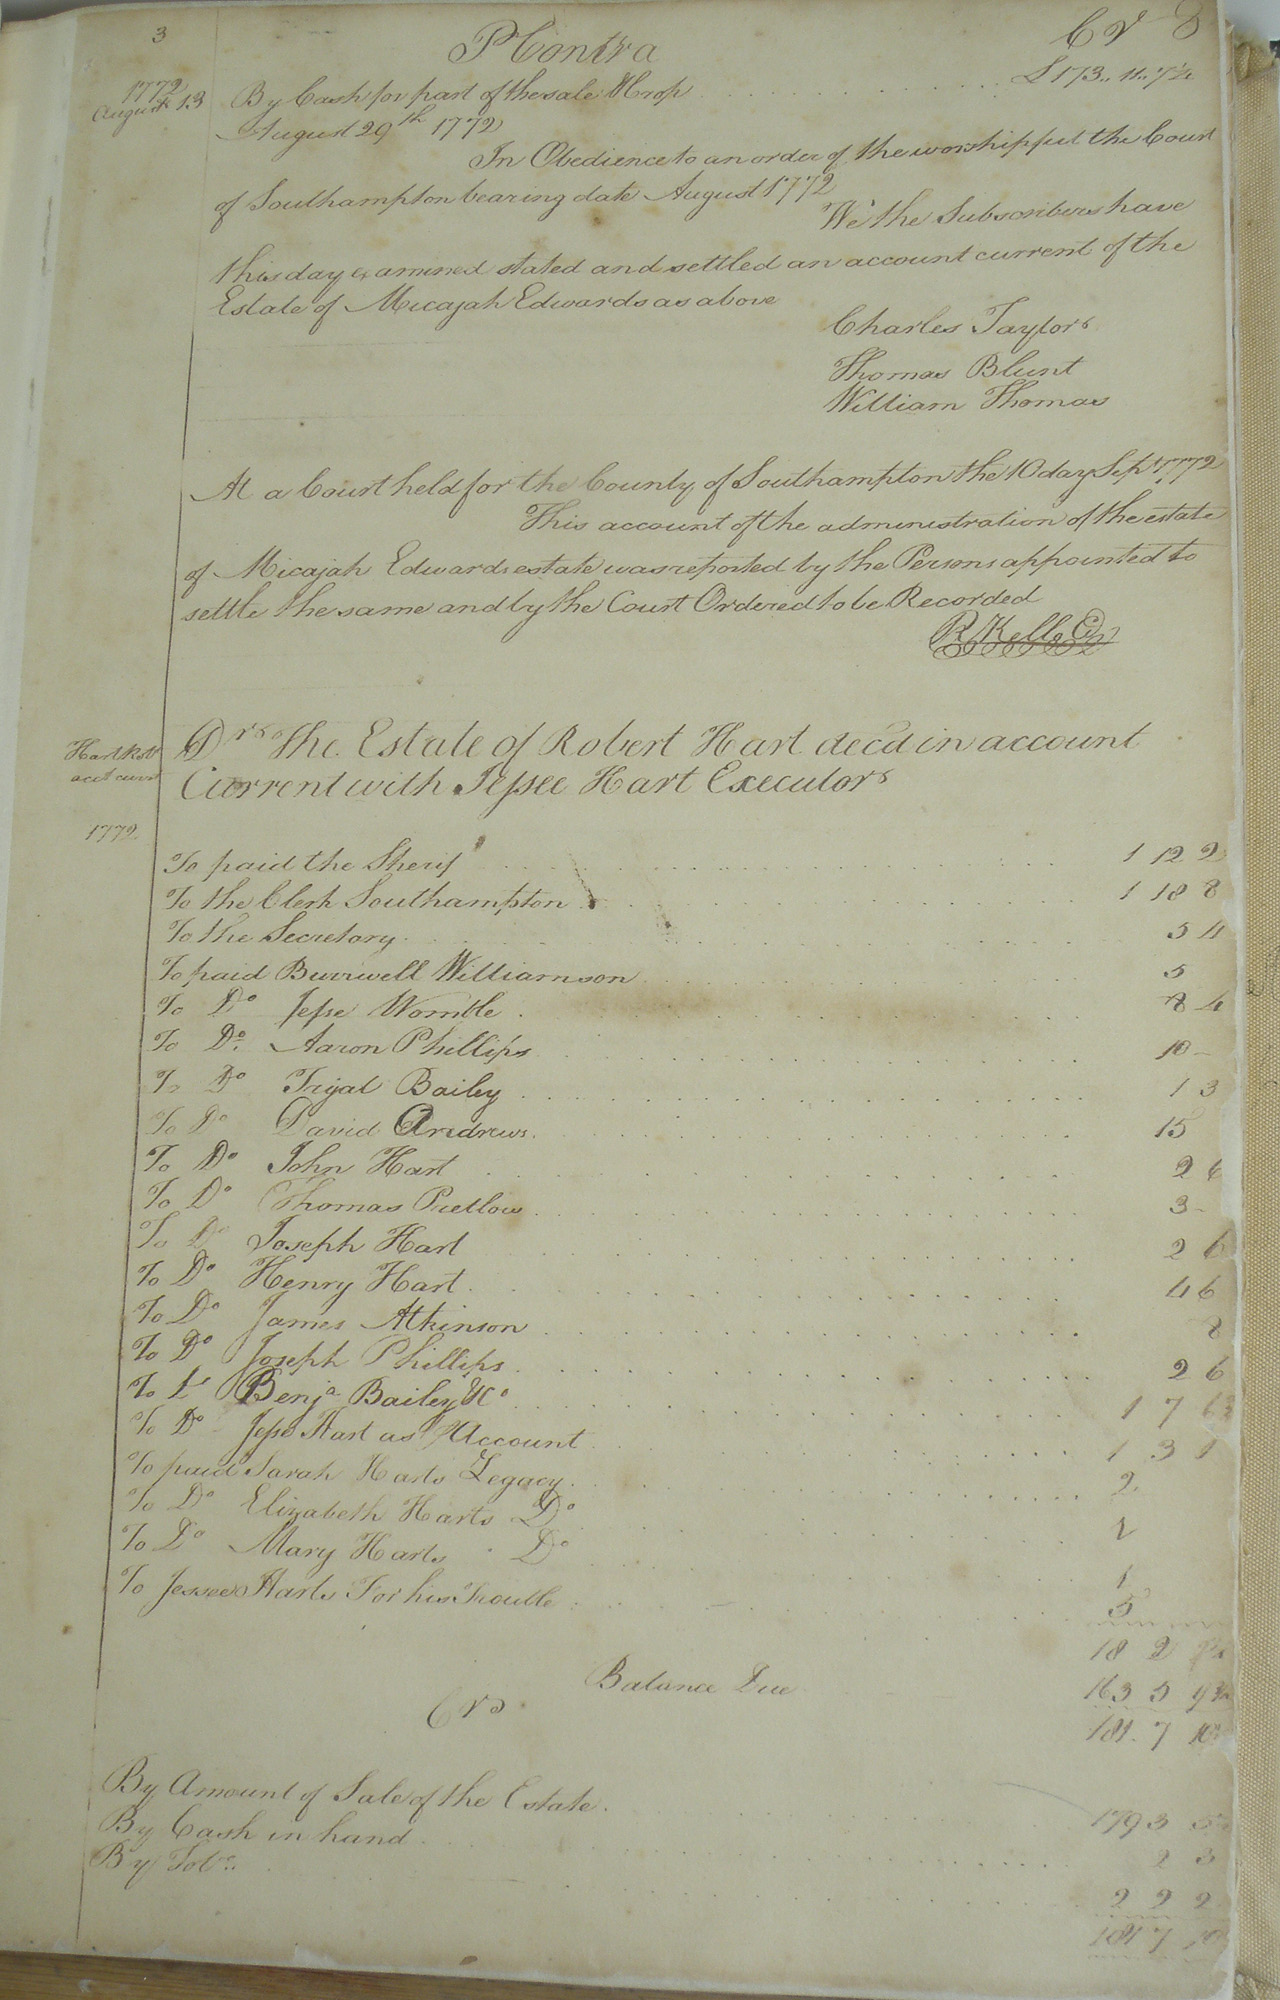 3
P Contra Cr
1772
August 13 By Cash for part of the sale &Crop £173.. 11.. 7½
August 29th 1772
In Obedience to an order of the worshipful the Court
of Southampton bearing date August 1772
We the Subscribers have
this day examined stated and settled an account current of the
Estate of Micajah Edwards as above
Charles Taylors
Thomas Blunt
William Thomas
At a Court held for the County of Southampton the 10 day Sept 1772
This account of the administration of the estate
of Micajah Edwards estate was reported by the Persons appointed to
settle the same and by the Court Ordered to be Recorded
R Kello
Hart Robt Drs The Estate of Robert Hart decd in account
acct curnt Current with Jessee Hart Executors
1772
To paid the Sherif 1 12 2
To the Clerk Southampton 1 18 8
To the Secretary 5 4
To paid Burrwell Williamson 5
To Do Jesse Womble 8 4
To Do Aaron Phillips 10 -
To Do Bailey 1 3
To Do David Andrews 15
To Do John Hart 2 6
To Do Thomas Pretlow 3 -
To Do Joseph Hart 2 6
To Do Henry Hart 4 6
To Do James Atkinson 8
To Do Joseph Phillips 2 6
To Do Benja Bailey &Co 1 7
To Do Jesse Hart as P Account 1 3 1
To paid Sarah Harts Legacy 2
To Do Elizabeth Harts Do
To Do Mary Harts Do 1
To Jessee Harts For his Trouble 5
18 2
Balance Due 163 5 9¾
Crs 181. 7
By Amount of Sale of the Estate 179 3 5
By Cash in hand 2 3
By Tobo 2 2 2
181 7